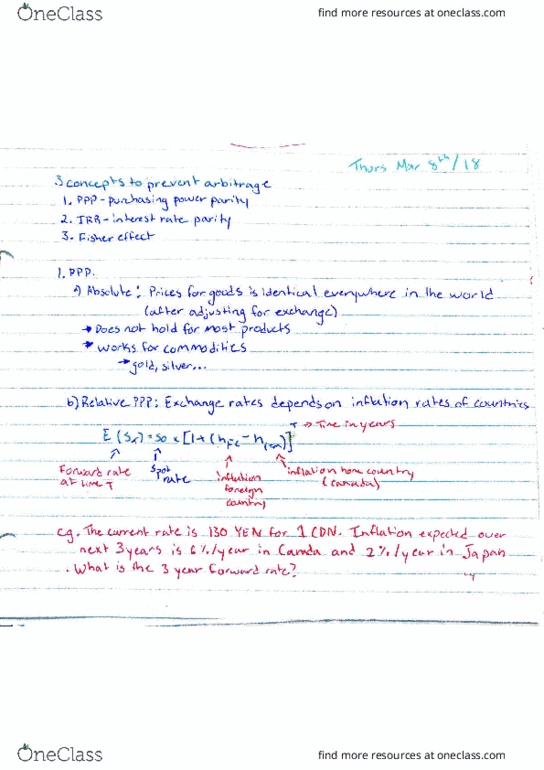 OneClass
find more resources at oneclass.com
Thurs Mar 8th/18
3 concepts to prevent arbitrage
1. PPP - purchasing power parity
2. IRR - interest rate parity
3. Fisher effect
1. PPP.
a) Absolute: Prices for goods is identical everywhere in the world
(after adjusting for exchange)
→ Does not hold for most products
→ works for commodities
→ gold, silver...
b) Relative PPP: Exchange rates depends on inflation rates of countries
T → Time in years
E(Sx) = So x [1 + (hFC - hcan)]
Forward rate at time T
Spot rate
inflation foreign country
inflation home country (Canada)
e.g. The current rate is 130 YEN for 1 CDN. Inflation expected over
next 3 years is 6%/year in Canada and 2%/year in Japan
. What is the 3 year forward rate?
OneClass
find more resources at oneclass.com